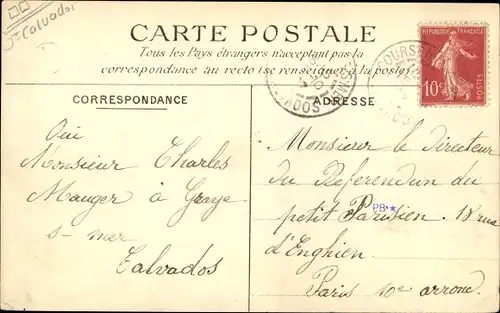 Calvados
CARTE POSTALE
Tous les Pays étrangers n'acceptent pas la
correspondance au recto (se renseigner à la poste)
CORRESPONDANCE
ADRESSE
REPUBLIQUE FRANÇAISE
10c
POSTES
COURSEU
Oui
Monsieur Charles
Mauger à Graye
s-mer
Calvados
Monsieur le Directeur
du Referendum du
petit Parisien. 18 rue
d'Enghien
Paris 10e arrond.
PB *